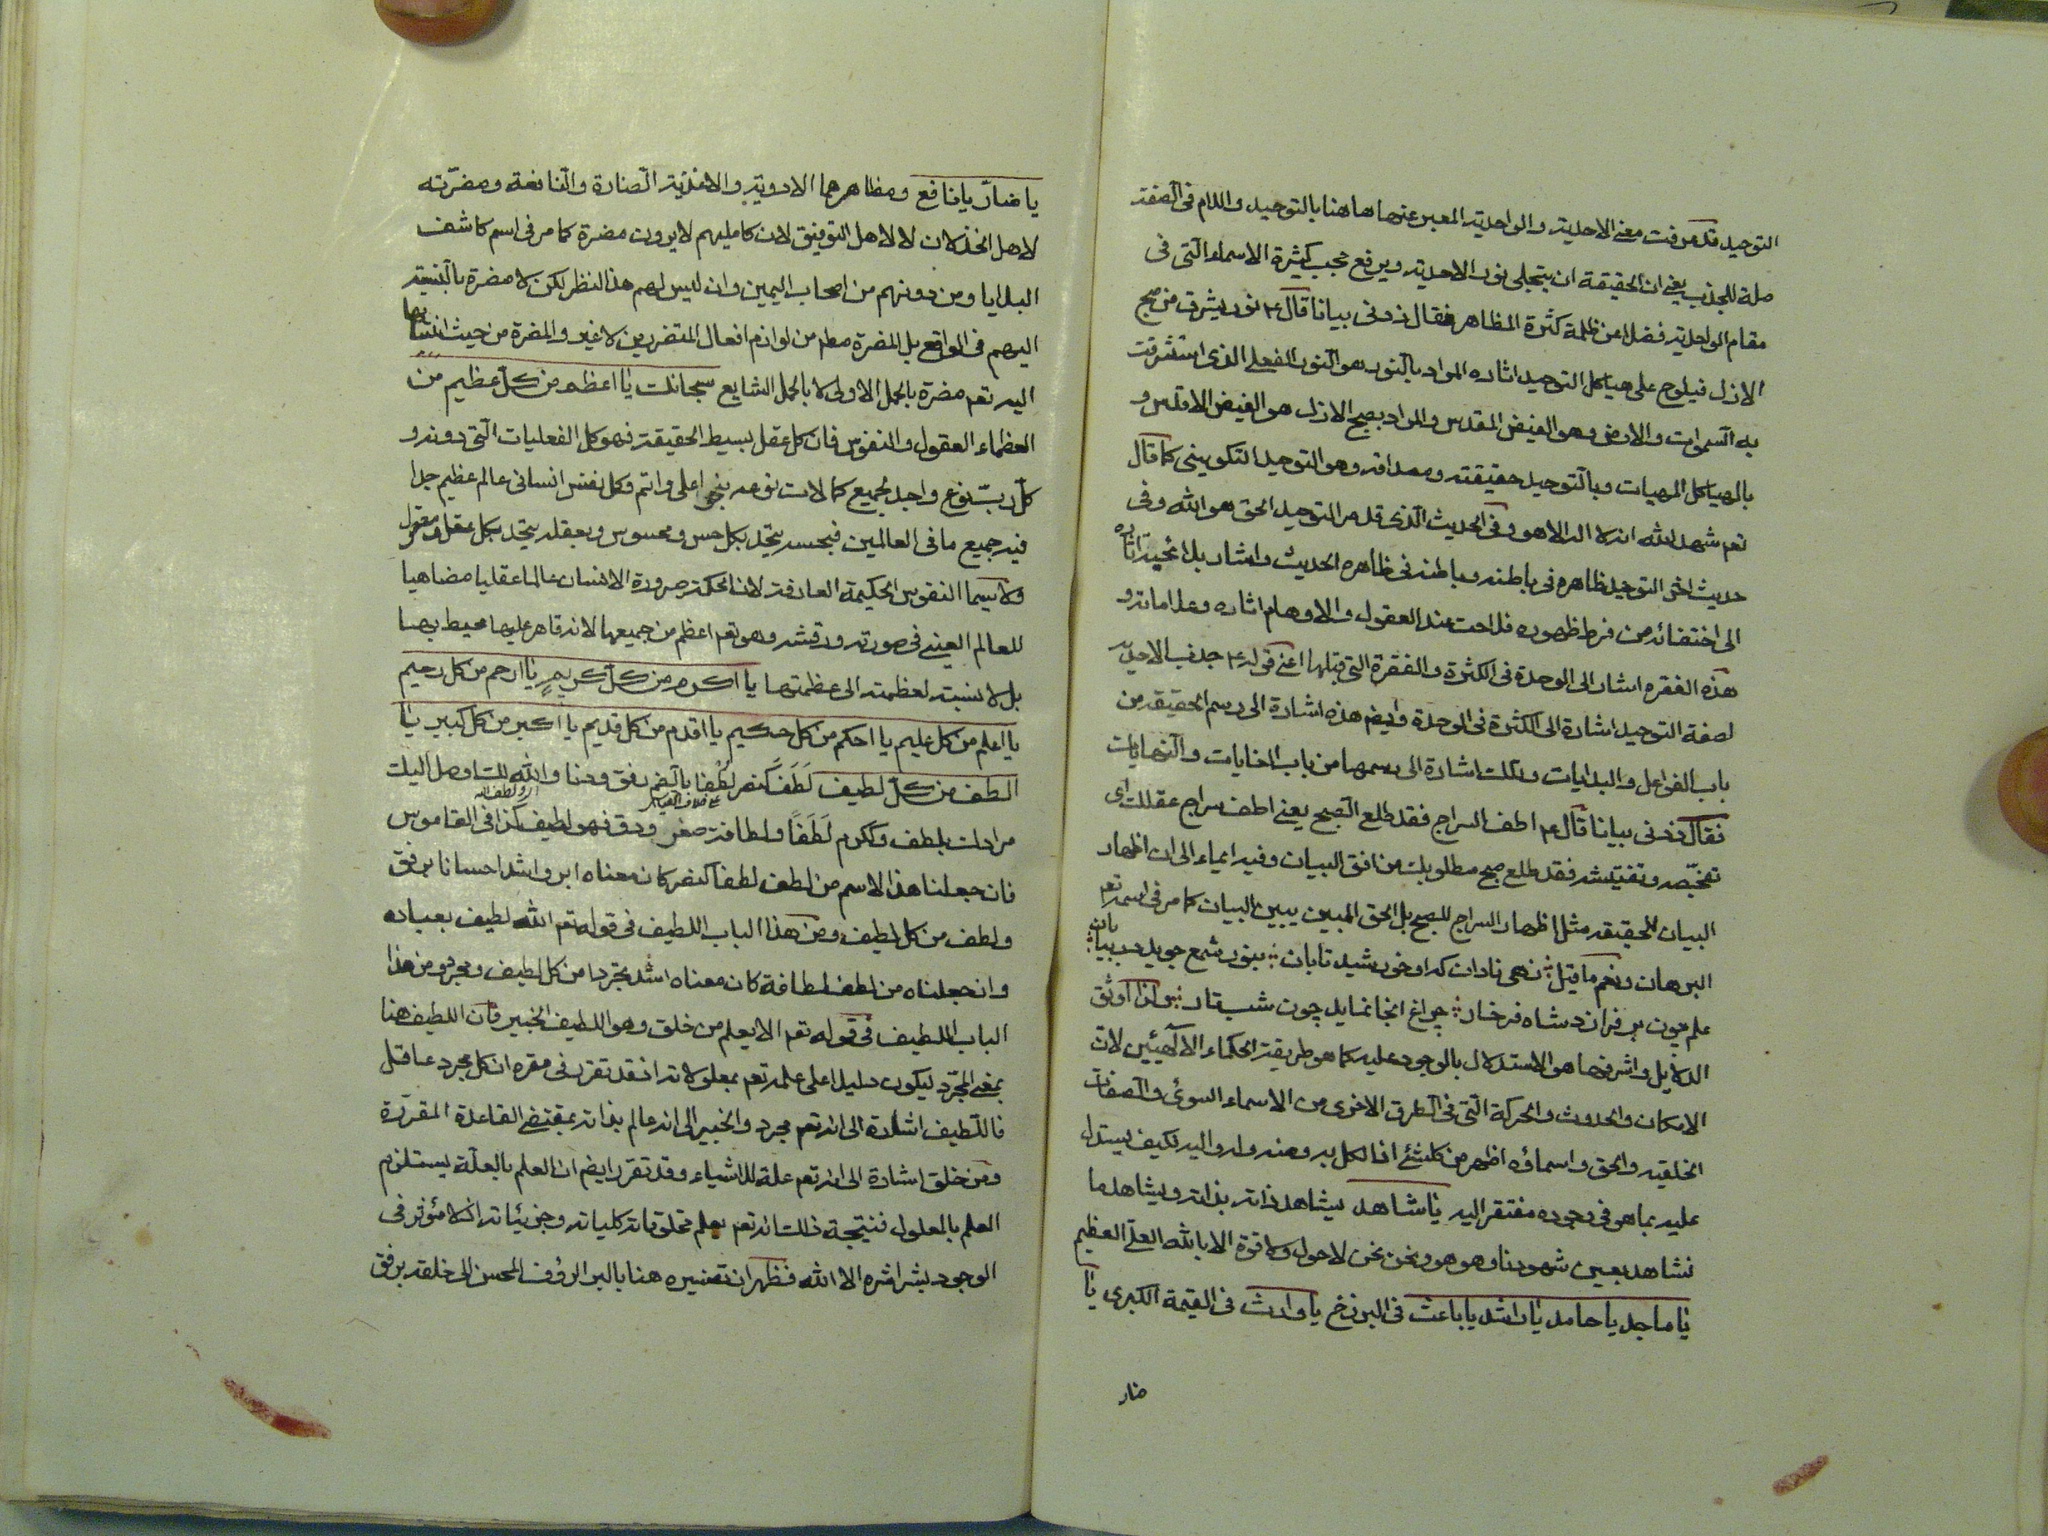 التوحيد قد عرفت معنى الاحدية والواحدية المعبر عنهما هاهنا بالتوحيد واللام فى الصفة
صلة للجذب يعنى ان الحقيقة ان يتجلى نور الاحدية ويرفع حجب كثرة الاسماء التى فى
مقام الواحدية فضلا عن ظلمة كثرة المظاهر فقال زدنى بيانا قال ع نور يشرق من صبح
الازل فيلوح على هياكل التوحيد اثاره المراد بالنور هو النور الفعلى الذى استشرقت
به السموات والارض وهو الفيض المقدس والمراد بصبح الازل هو الفيض الاقدس و
بالهياكل المهيات وبالتوحيد حقيقته ومصداقه وهو التوحيد التكوينى كما قال
تعم شهد الله انه لا اله الا هو وفى الحديث الذى قد مر التوحيد الحق هو الله وفى
حديث اخر التوحيد ظاهره فى باطنه وباطنه فى ظاهره الحديث واشار بلائحية اثاره
الى اختفائه من فرط ظهوره فلاحت عند العقول والاوهام اثاره وعلاماته و
هذه الفقره اشار الى الوحدة فى الكثرة والفقرة التى قبلها اعنى قوله ع جذب الاحدية
لصفة التوحيد اشارة الى الكثرة فى الوحدة وايضم هذه اشارة الى رسم الحقيقة من
باب الفواعل والبدايات وتلك اشارة الى رسمها من باب الغايات والنهايات
فقال زدنى بيانا قال ع اطف السراج فقد طلع الصبح يعنى اطف سراج عقلك اى
تفحّصه وتفتيشه فقد طلع صبح مطلوبك من افق البيان وفيه ايماء الى ان اظهار
البيان للحقيقة مثل اظهار السراج للصبح بل الحق المبين يبين البيان كما مر فى اسمه تعم
البرهان ونعم ما قيل زهى نادان كه او خورشيد تابان بنور شمع جويد در بيابان
علم چون بر فرازد شاه فرخار چراغ انجا نمايد چون شب تار فهى اذا اوثق
الدلايل واشرفها هو الاستدلال بالوجود عليه كما هو طريقة الحكماء الالهيين لان
الامكان والحدوث والحركة التى فى الطرق الاخرى من الاسماء السوئى والصفات
الخلقية والحق واسماؤه اظهر من كلشئ اذ الكل به ومنه وله واليه فكيف يستدل
عليه بما هو فى وجوده مفتقر اليه يا شاهد يشاهد ذاته بذاته ويشاهد ما
نشاهد بعين شهودنا وهو هو ونحن نحن لا حول ولا قوة الا بالله العلى العظيم
يا ماجد يا حامد يا راشد يا باعث فى البرزخ يا وارث فى القيمة الكبرى يا
ضار
يا ضارّ يا نافع ومظاهرهما الادوية والاغذية الضارة والنافعة ومضرّته
لاهل الخذلان لا لاهل التوفيق لان كامليهم لا يرون مضرة كما مر فى اسم كاشف
البلايا ومن دونهم من اصحاب اليمين وان ليس لهم هذا النظر لكن لا مضرة بالنسبة
اليهم فى الواقع بل المضرة مطم من لوازم افعال المتضررين لا غير والمضرة من حيث انتسابها
اليه تعم مضرة بالحمل الاولى لا بالحمل الشايع سبحانك يا اعظم من كل عظيم من
العظماء العقول والنفوس فان كل عقل بسيط الحقيقة فهو كل الفعليات التى دونه و
كلّ ربّ نوع واجد لجميع كمالات نوعه بنحو اعلى واتم وكل نفس انسانى عالم عظيم جدا
فيه جميع ما فى العالمين فبحسه يتحد بكل حس ومحسوس وبعقله يتحد بكل عقل ومعقول
ولا سيما النفوس الحكيمة العارفة لان الحكمة صيرورة الانسان عالما عقليا مضاهيا
للعالم العينى فى صورته ورقشه وهو تعم اعظم من جميعها لانه قاهر عليها محيط بها
بل لا نسبة لعظمته الى عظمتها يا اكرم من كل كريم يا ارحم من كل رحيم
يا اعلم من كل عليم يا احكم من كل حكيم يا اقدم من كل قديم يا اكبر من كل كبير يا
الطف من كل لطيف لَطَفَ كنصر لُطفا بالضم رفق ودنا والله لك اوصل اليك
مرادك بلطف وككرم لَطَفًا ولطافة صغر ودق فهو لطيف كذا فى القاموس
فان جعلنا هذا الاسم من لطف لطفا كنصر كان معناه ابر واشد احسانا برفق
ولطف من كل لطيف ومن هذا الباب اللطيف فى قوله تعم الله لطيف بعباده
وان جعلناه من لطف لطافة كان معناه اشد تجردا من كل لطيف ومجرد ومن هذا
الباب اللطيف فى قوله تعم الا يعلم من خلق وهو اللطيف الخبير فان اللطيف هنا
بمعنى المجرّد ليكون دليلا على علمه تعم بمعلولاته اذ قد تقرر فى مقره ان كل مجرد عاقل
فاللطيف اشارة الى انه تعم مجرد والخبير الى انه عالم بذاته بمقتضى القاعدة المقررة
ومن خلق اشارة الى انه تعم علة للاشياء وقد تقرر ايضم ان العلم بالعلّة يستلزم
العلم بالمعلول فنتيجة ذلك انه تعم يعلم مخلوقاته كلياته وجزئياته اذ لا مؤثر فى
الوجود بشراشره الا الله فظهر ان تفسيره هنا بالبر الرؤف المحسن الى خلقه برفق